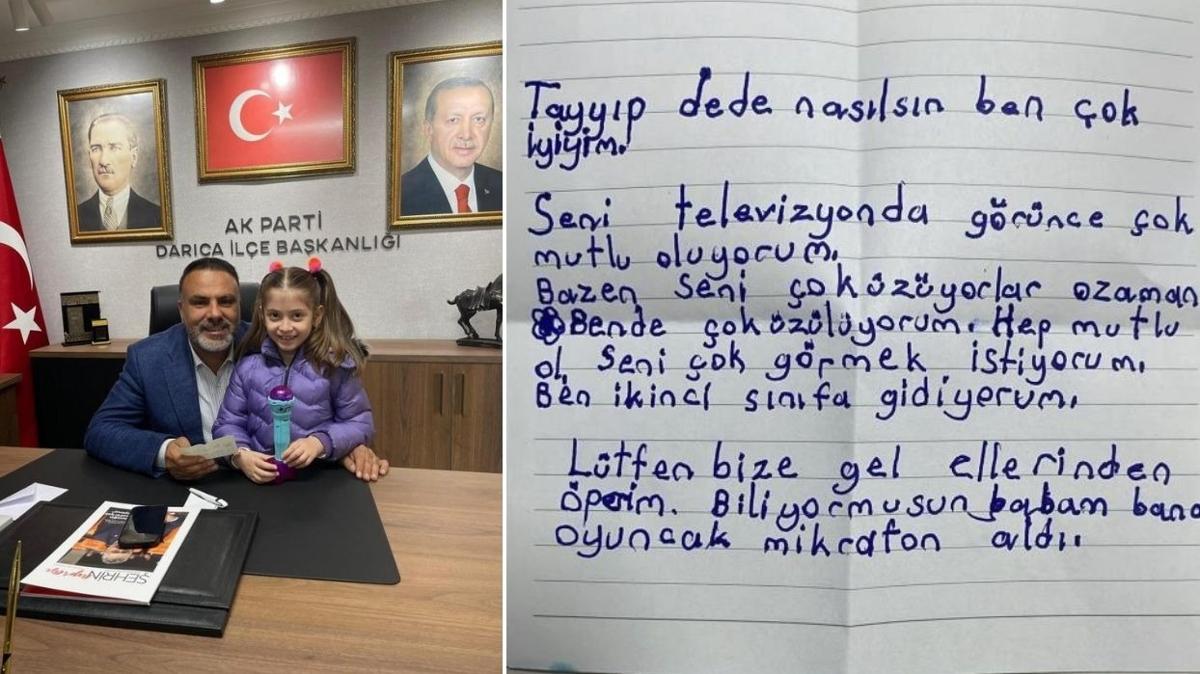 AK PARTİ
DARICA İLÇE BAŞKANLIĞI
ŞEHRİN
Tayyıp dede nasılsın ben çok
iyiyim.
Seni televizyonda görünce çok
mutlu oluyorum.
Bazen seni çok üzüyorlar ozaman
Bende çok üzülüyorum. Hep mutlu
ol, seni çok görmek istiyorum.
Ben ikinci sınıfa gidiyorum.
Lütfen bize gel ellerinden
öperim. Biliyormusun babam bana
oyuncak mikrafon aldı.